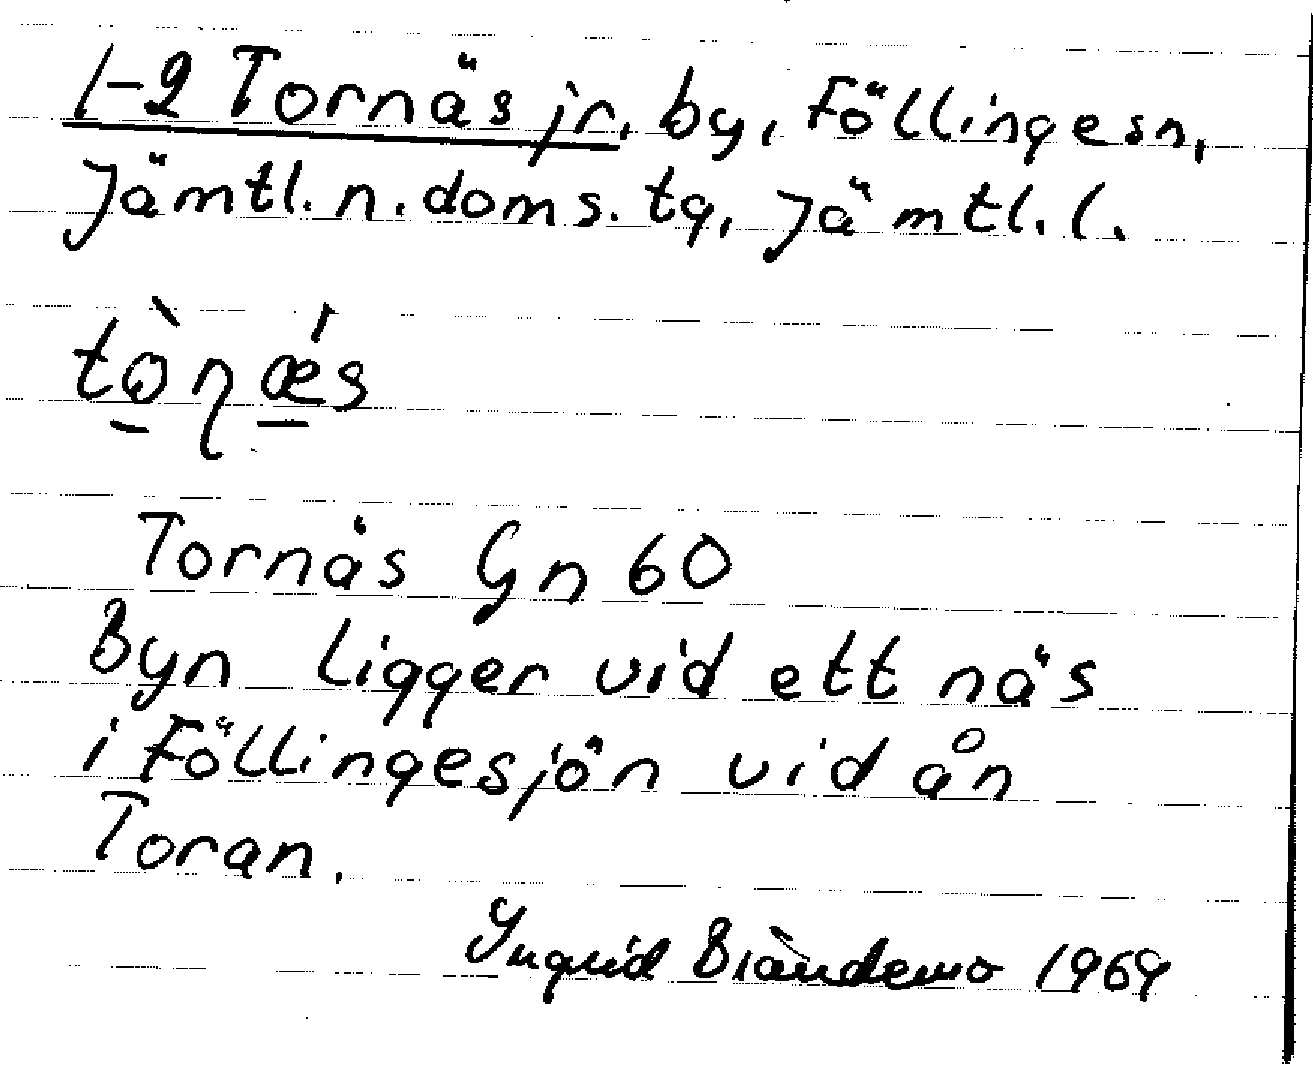 1-2 Tornäs jr, by, Föllinge sn,
Jämtl. n. doms. tg, Jämtl. l.
tò̠ɳǽ̠s
Tornäs Gn 60
Byn ligger vid ett näs
i Föllingesjön vid ån
Toran.
Ingrid 1969